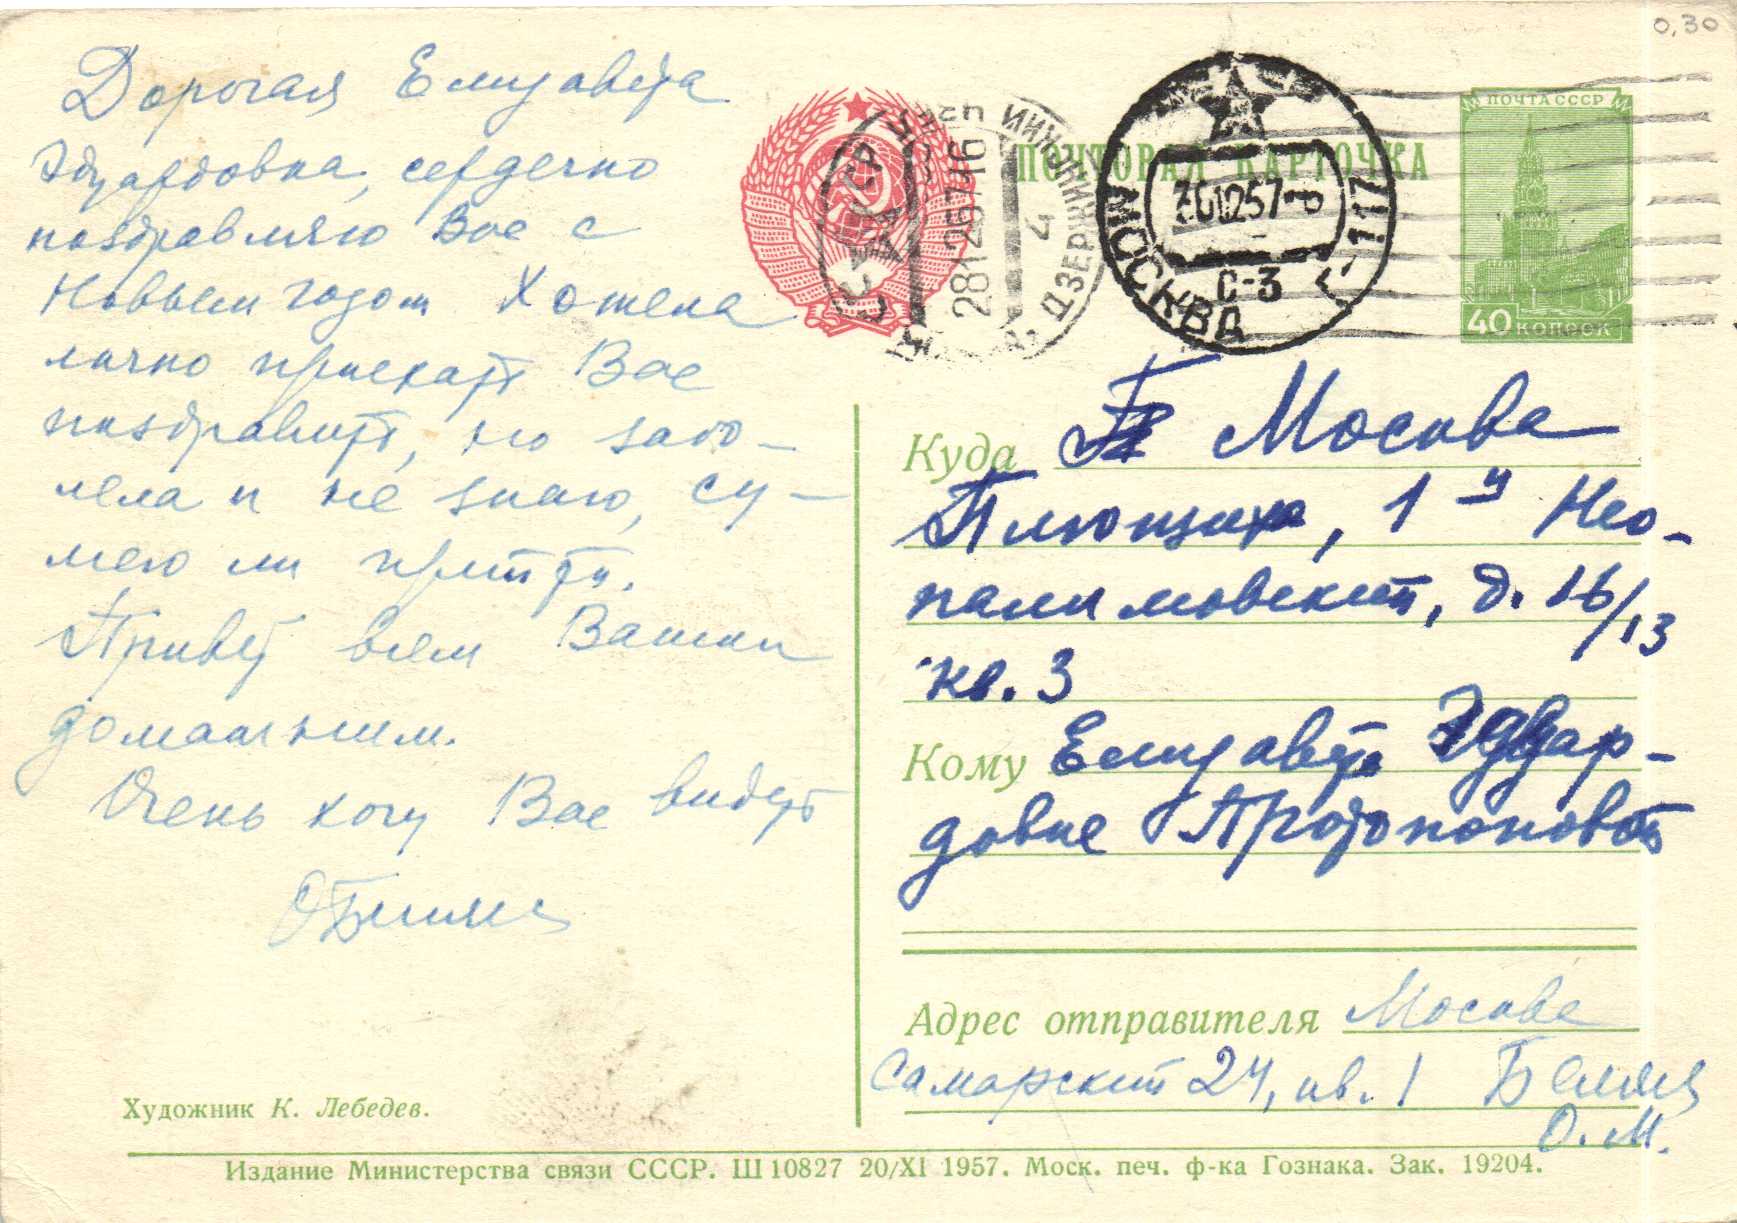 0,30
Дорогая Елизавета
Эдуардовна, сердечно
поздравляю Вас с
Новым годом Хотела
лично приехать Вас
поздравить, но забо-
лела и не знаю, су-
мею ли притти.
Привет всем Вашим
домашним.
Очень хочу Вас видеть
ОБ
Художник К. Лебедев.
ПОЧТОВАЯ КАРТОЧКА
ПОЧТА СССР
40 КОПЕЕК
281257-16
4
МОСКВА
Г-117
С-3
Куда Москва
Плющиха, 1й Нео-
палимовский, д. 16/13
кв. 3
Кому Елизавете Эдуар-
довне Протопоповой
Адрес отправителя Москва
Самарский 24, кв. 1
О. М.
Издание Министерства связи СССР. Ш 10827 20/XI 1957. Моск. печ. ф-ка Гознака. Зак. 19204.